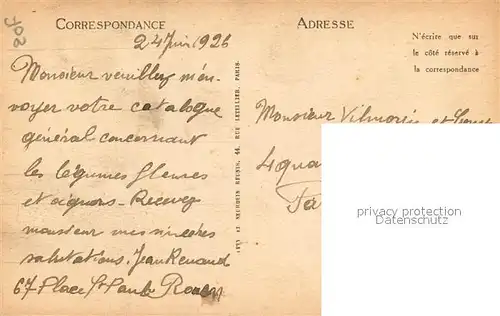 CORRESPONDANCE
ADRESSE
24 Juin 1926
N'écrire que sur
le côté réservé à
la correspondance
Monsieur veuillez m'en-
voyer votre catalogue
général concernant
les légumes fleures
et oignons - Recevez
monsieur mes sincères
salutations. Jean Renaud
67 Place St Paul Rouen
NEURDEIN RÉUNIS, 44, RUE LETELLIER, PARIS.
Monsieur Vilmorin et
4 qua
privacy protection
Datenschutz